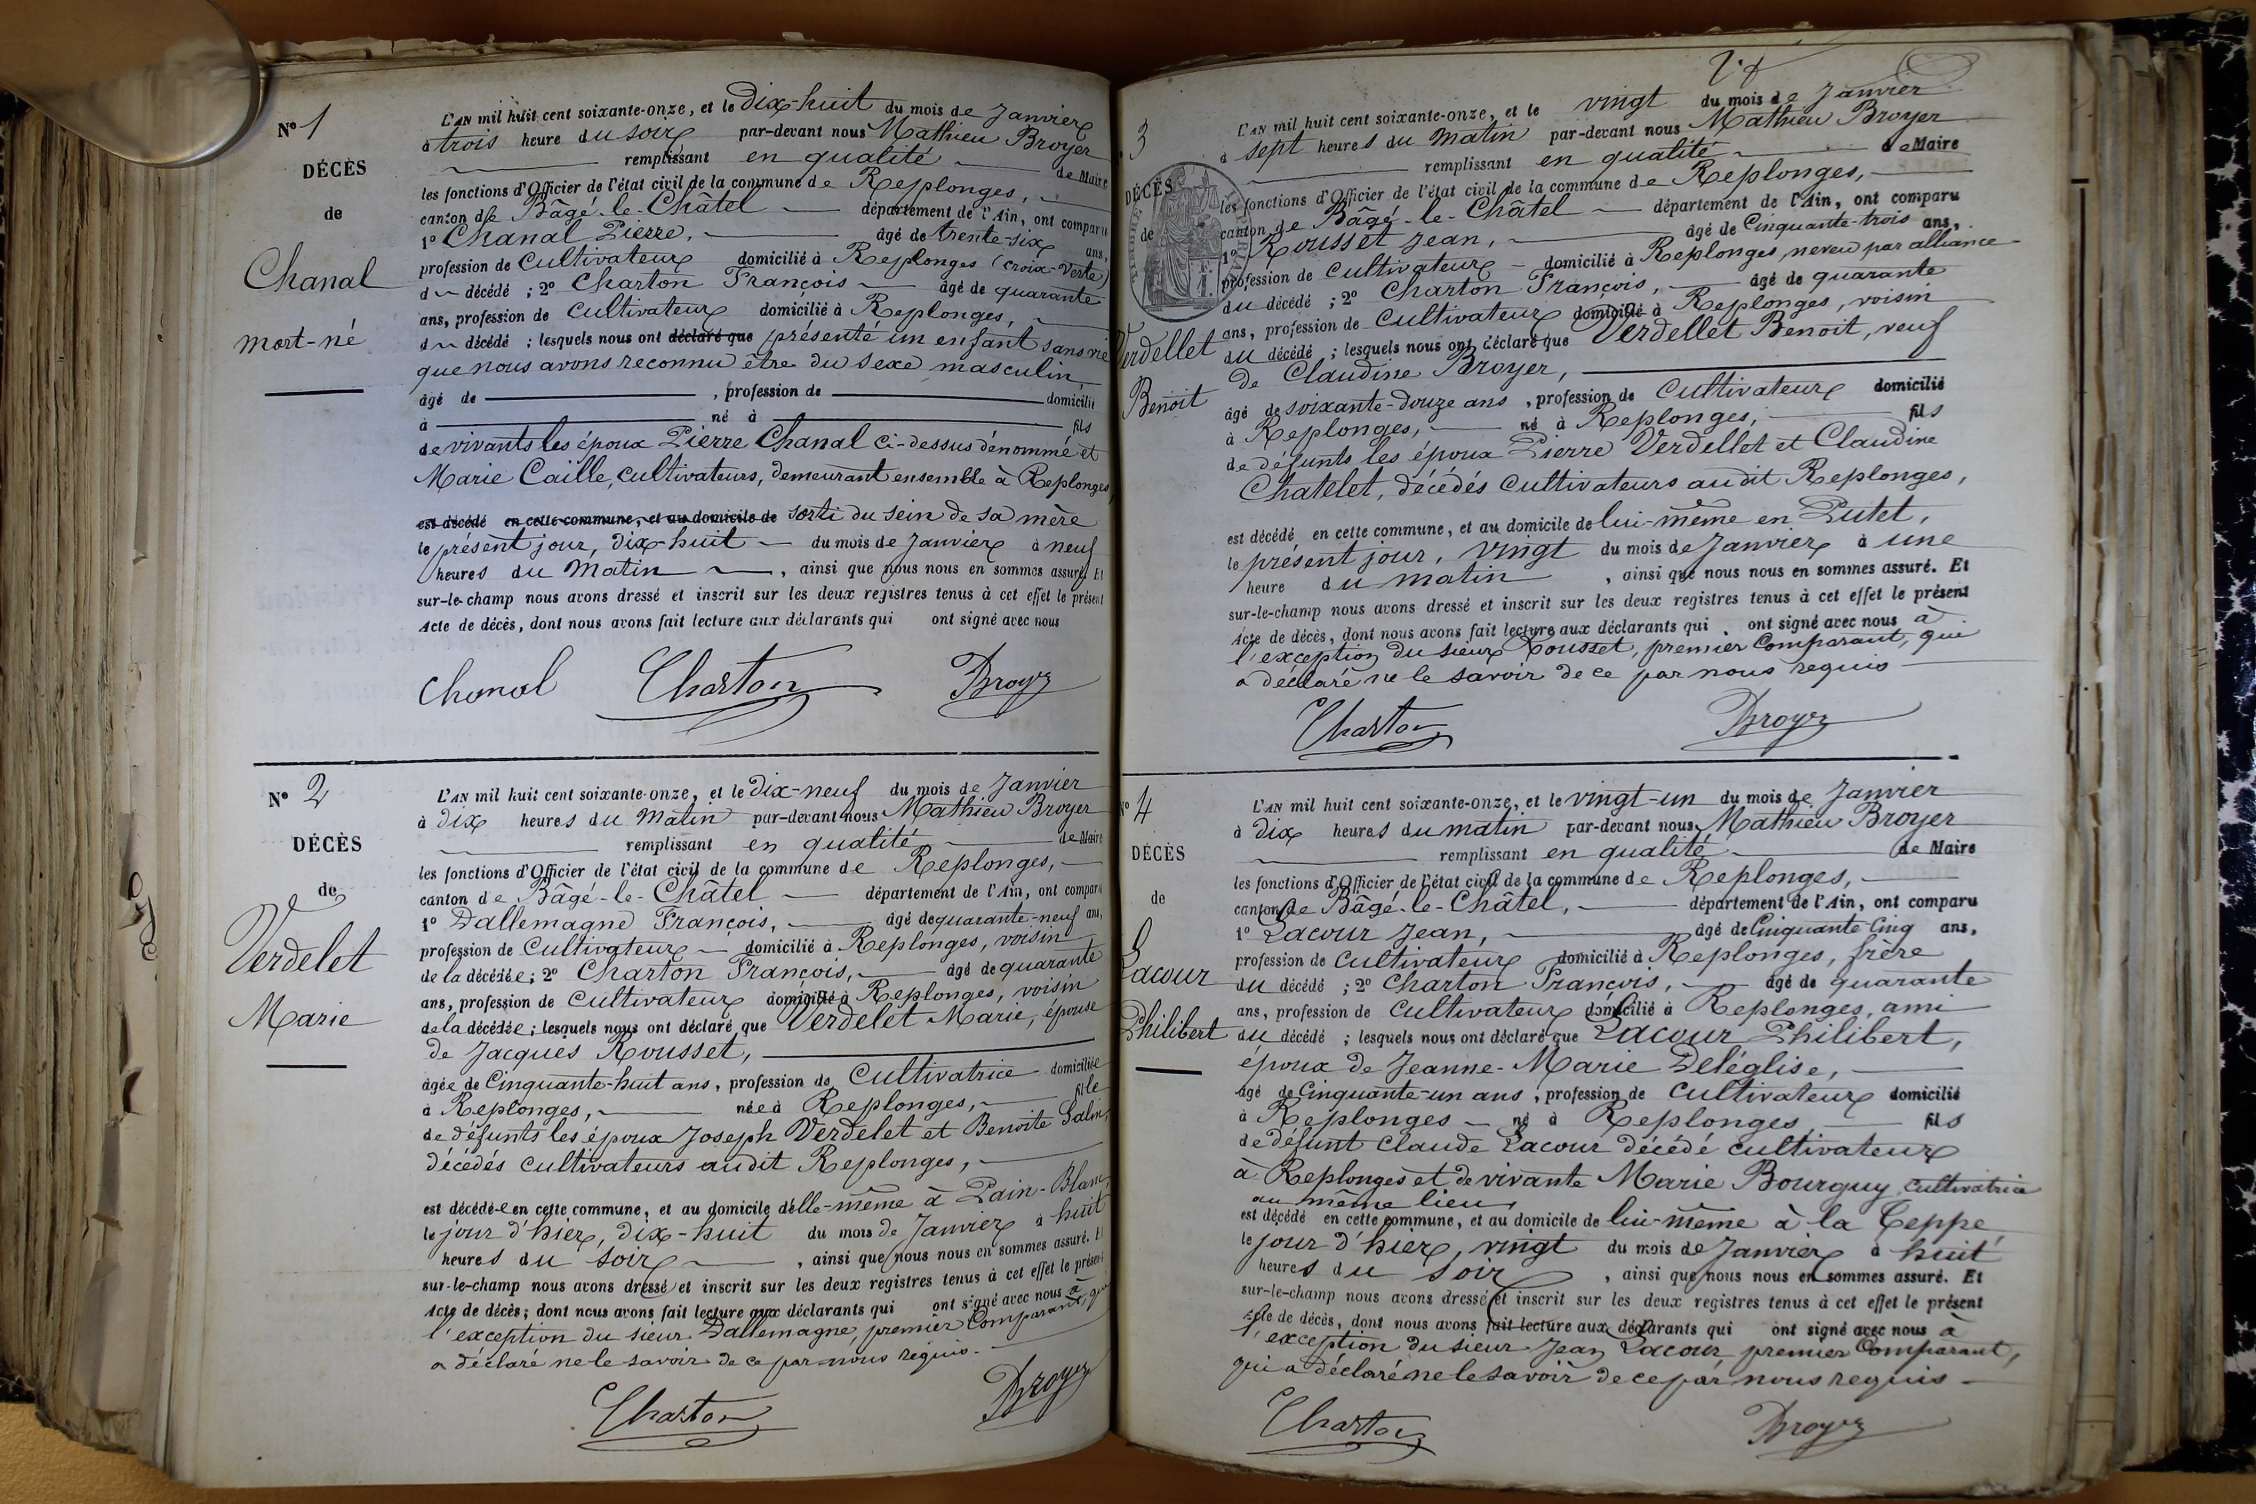 Nº 1
DÉCÈS
de
Chanal
mort-né
L'AN mil huit cent soixante-onze, et le Dix-huit du mois de Janvier
à trois heure du soir par-devant nous Mathieu Broyer
remplissant en qualité de Maire
les fonctions d'Officier de l'état civil de la commune de Replonges,
canton de Bâgé-le-Châtel département de l'Ain, ont comparu
1º Chanal Pierre, âgé de trente-six ans,
profession de Cultivateur domicilié à Replonges (Croix-Verte)
d décédé ; 2º Charton François âgé de quarante
ans, profession de Cultivateur domicilié à Replonges,
d décédé ; lesquels nous ont déclaré que présenté un enfant sans vie
que nous avons reconnu être du sexe masculin
âgé de , profession de domicilié
à né à fils
de vivants les époux Pierre Chanal ci-dessus dénommé et
Marie Caille, cultivateurs, demeurant ensemble à Replonges,
est décédé en cette commune, et au domicile de sorti du sein de sa mère
le présent jour, dix-huit du mois de Janvier à neuf
heures du Matin , ainsi que nous nous en sommes assuré. Et
sur-le-champ nous avons dressé et inscrit sur les deux registres tenus à cet effet le présent
Acte de décès, dont nous avons fait lecture aux déclarants qui ont signé avec nous
Chanal Charton Broyer
Nº 2
DÉCÈS
de
Verdelet
Marie
L'AN mil huit cent soixante-onze, et le Dix-neuf du mois de Janvier
à Dix heures du Matin par-devant nous Mathieu Broyer
remplissant en qualité de Maire
les fonctions d'Officier de l'état civil de la commune de Replonges,
canton de Bâgé-le-Châtel département de l'Ain, ont comparu
1º Dallemagne François, âgé de quarante-neuf ans,
profession de Cultivateur domicilié à Replonges, voisin
de la décédée ; 2º Charton François, âgé de quarante
ans, profession de Cultivateur domicilié à Replonges, voisin
de la décédée ; lesquels nous ont déclaré que Verdelet Marie, épouse
de Jacques Rousset,
âgée de Cinquante-huit ans, profession de Cultivatrice domiciliée
à Replonges, née à Replonges, fille
de défunts les époux Joseph Verdelet et Benoite Galin,
décédés cultivateurs audit Replonges,
est décédée en cette commune, et au domicile d'elle-même à Pain-Blanc,
le jour d'hier, dix-huit du mois de Janvier à huit
heures du soir , ainsi que nous nous en sommes assuré. Et
sur-le-champ nous avons dressé et inscrit sur les deux registres tenus à cet effet le présent
Acte de décès ; dont nous avons fait lecture aux déclarants qui ont signé avec nous à
l'exception du sieur Dallemagne, premier Comparant, qui
a déclaré ne le savoir de ce par nous requis.
Charton Broyer
3
DÉCÈS
de
Verdellet
Benoit
L'AN mil huit cent soixante-onze, et le vingt du mois de Janvier
à sept heures du Matin par-devant nous Mathieu Broyer
remplissant en qualité de Maire
les fonctions d'Officier de l'état civil de la commune de Replonges,
canton de Bâgé-le-Châtel département de l'Ain, ont comparu
1º Rousset Jean, âgé de Cinquante-trois ans,
profession de Cultivateur domicilié à Replonges, neveu par alliance
du décédé ; 2º Charton François, âgé de quarante
ans, profession de Cultivateur domicilié à Replonges, voisin
du décédé ; lesquels nous ont déclaré que Verdellet Benoit, veuf
de Claudine Broyer,
âgé de soixante-douze ans , profession de Cultivateur domicilié
à Replonges, né à Replonges, fils
de défunts les époux Pierre Verdellet et Claudine
Chatelet, décédés cultivateurs audit Replonges,
est décédé en cette commune, et au domicile de lui-même en Putet,
le présent jour, vingt du mois de Janvier à une
heure du matin , ainsi que nous nous en sommes assuré. Et
sur-le-champ nous avons dressé et inscrit sur les deux registres tenus à cet effet le présent
Acte de décès, dont nous avons fait lecture aux déclarants qui ont signé avec nous à
l'exception du sieur Rousset, premier Comparant, qui
a déclaré ne le savoir de ce par nous requis
Charton Broyer
Nº 4
DÉCÈS
de
Lacour
Philibert
L'AN mil huit cent soixante-onze, et le vingt-un du mois de Janvier
à dix heures du matin par-devant nous Mathieu Broyer
remplissant en qualité de Maire
les fonctions d'Officier de l'état civil de la commune de Replonges,
canton de Bâgé-le-Châtel, département de l'Ain, ont comparu
1º Lacour Jean, âgé de Cinquante Cinq ans,
profession de Cultivateur domicilié à Replonges, frère
du décédé ; 2º Charton François, âgé de quarante
ans, profession de Cultivateur domicilié à Replonges, ami
du décédé ; lesquels nous ont déclaré que Lacour Philibert,
époux de Jeanne-Marie Deléglise,
âgé de Cinquante-un ans , profession de Cultivateur domicilié
à Replonges né à Replonges fils
de défunt Claude Lacour décédé cultivateur
à Replonges et de vivante Marie Bourguy cultivatrice
au même lieu,
est décédé en cette commune, et au domicile de lui-même à la Teppe,
le jour d'hier, vingt du mois de Janvier à huit
heures du soir , ainsi que nous nous en sommes assuré. Et
sur-le-champ nous avons dressé et inscrit sur les deux registres tenus à cet effet le présent
Acte de décès, dont nous avons fait lecture aux déclarants qui ont signé avec nous à
l'exception du sieur Jean Lacour premier Comparant,
qui a déclaré ne le savoir de ce par nous requis
Charton Broyer